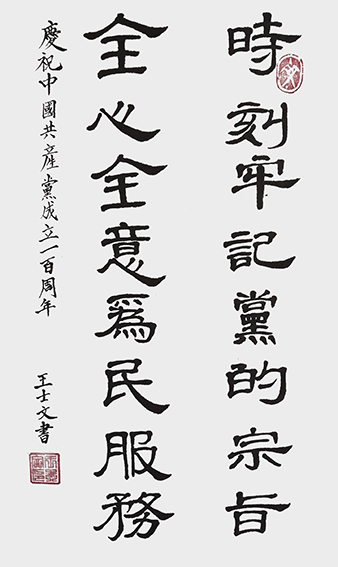 時刻牢記黨的宗旨
全心全意爲民服務
慶祝中國共產黨成立一百周年
王士文書